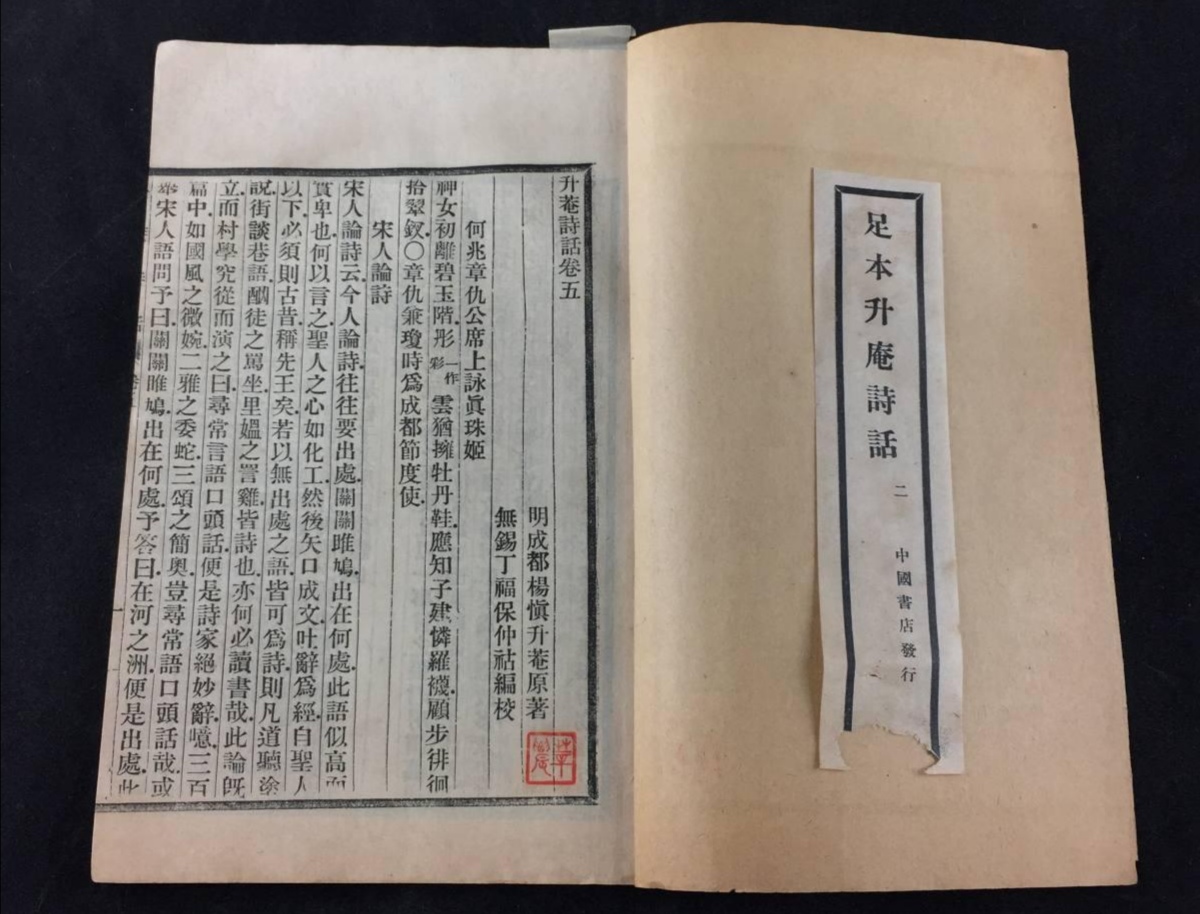 足本升庵詩話
二
中國書店發行
升菴詩話卷五
明成都楊愼升菴原著
無錫丁福保仲祜編校
何兆章仇公席上詠眞珠姬
神女初離碧玉階.彤一作彩雲猶擁牡丹鞋.應知子建憐羅襪.顧步徘徊
拾翠釵.〇章仇兼瓊時爲成都節度使.
宋人論詩
宋人論詩云.今人論詩.往往要出處.關關雎鳩.出在何處.此語似高而
實卑也何以言之聖人之心如化工然後矢口成文.吐辭爲經.自聖人
以下.必須則古昔.稱先王矣.若以無出處之語.皆可爲詩.則凡道聽塗
說.街談巷語.酗徒之罵坐.里媼之詈雞.皆詩也.亦何必讀書哉.此論旣
立.而村學究從而演之曰.尋常言語口頭話.便是詩家絕妙辭.噫.三百
篇中.如國風之微婉.二雅之委蛇.三頌之簡奧.豈尋常語口頭話哉.或
舉宋人語問予曰.關關雎鳩.出在何處.予答曰.在河之洲.便是出處.此